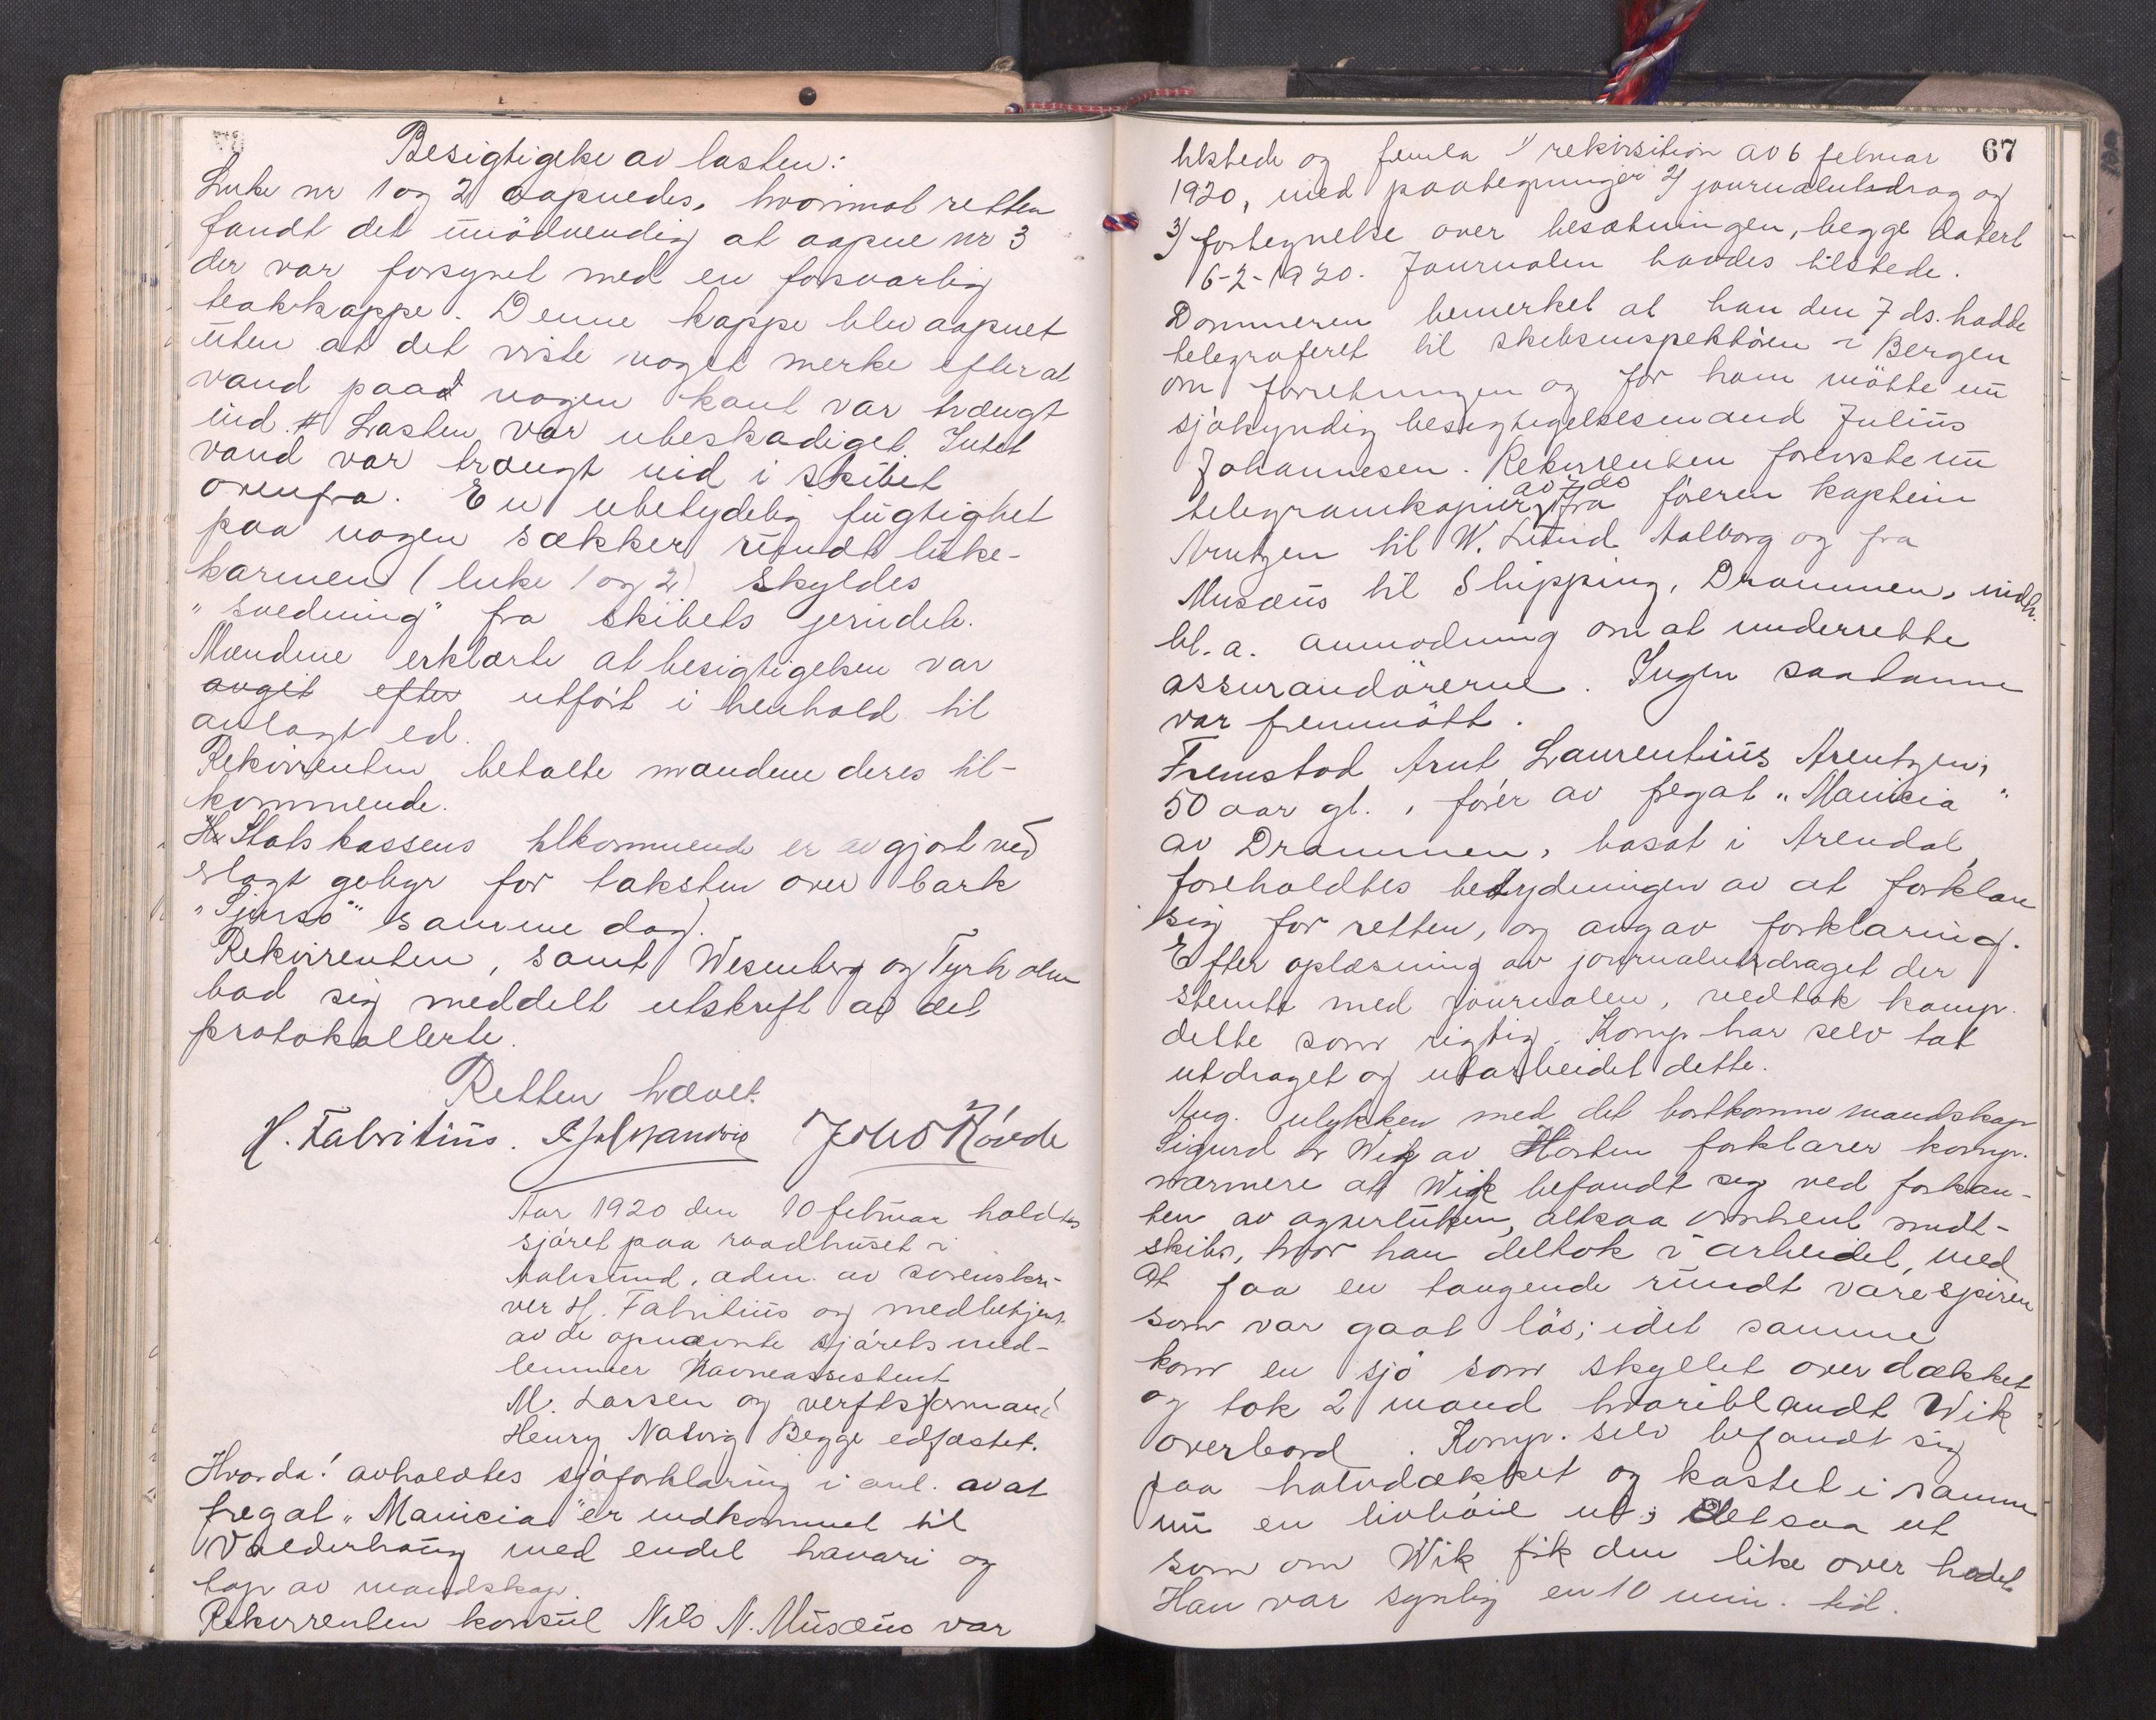 Besigtigelse av lasten:
Luke nr 1 og 2 aapnedes, hvorimot retten
fandt det unödvendig at aapne nr 3
der var forsynet med en forsvarlig
teakkappe. Denne kappe blev aapnet
uten at det viste noget merke efter at
vand paa nogen kant var trængt
ind. Lasten var ubeskadiget. Intet
vand var trængt ind i skibet
ovenfra. En ubetydelig fugtighet
paa nogen sækker rundt luke-
karmen (luke 1 og 2) skyldes
"svedning" fra skibets jerndele.
Mændene erklærte at besigtigelsen var
avgit efter utfört i henhold til
avlagt ed.
Rekvirenten betalte mændene deres til-
kommende.
Statskassens tilkommende er avgjort ved
slagt gebyr for taksten over bark
"Tjersö" samme dag.
Rekvirenten, samt Wesenberg og Tyrholm
bad sig meddelt utskrift av det
protokollerte.
Retten hævet.
H. Fabritius. Johs Hövde
Aar 1920 den 10 februar holdtes
sjöret paa raadhuset i
Aalesund, adm. av sorenskri-
ver H. Fabritius og medbetjent
av de opnævnte sjörets med-
lemmer havneassistent
M. Larsen og verftsformand
Henry Natvig Begge edfæstet.
Hvorda! avholdtes sjöforklaring i anl. av at
fregat "Manicia" er indkommet til
Valderhaug med endel havari og
tap av mandskap.
Rekvirenten konsul Nils N. Musæus var
67
tilstede og femla 1/ rekvisition av 6 februar
1920, med paategninger 2/ journalutsdrag og
3/ fortegnelse over besætningen, begge datert
6-2-1920. Journalen havdes tilstede.
Dommeren bemerket at han den 7 ds. hadde
telegraferet til skibsinspektören i Bergen
om forretningen og for ham mötte nu
sjökyndig besigtigelsesmand Julius
Johannesen. Rekvirenten foreviste nu
telegramkopier av 7 ds fra föreren kaptein
Arntzen til W. Lund Aalborg og fra
Musæus til Shipping, Drammen, indh.
bl. a. anmodning om at underrette
assurandörerne. Ingen saadanne
var fremmött.
Fremstod Arnt Laurentius Arentzen,
50 aar gl., förer av fregat "Manicia"
av Drammen, bosat i Arendal,
foreholdtes betydningen av at forklare
sig for retten, og avgav forklaring.
Efter oplæsning av journalutdraget der
stemte med journalen, vedtok komp.
dette som rigtig. Komp. har selv tat
utdraget og utarbeidet dette.
Ang. ulykken med det bortkomne mandskap
Sigurd Wik av Horten forklarer komp.
nærmere at Wik befandt sig ved forkan-
ten av agterluken, altsaa omtrent midt-
skibs, hvor han deltok i arbeidet, med
at faa en taugende rundt varespiren
som var gaat lös; idet samme
kom en sjö som skyllet over dækket
og tok 2 mand hvoriblandt Wik
overbord. Komp. selv befandt sig
paa halvdækket og kastet i samme
nu en livböie ut; det saa ut
som om Wik fik den like over hodet.
Han var synlig en 10 min. tid.